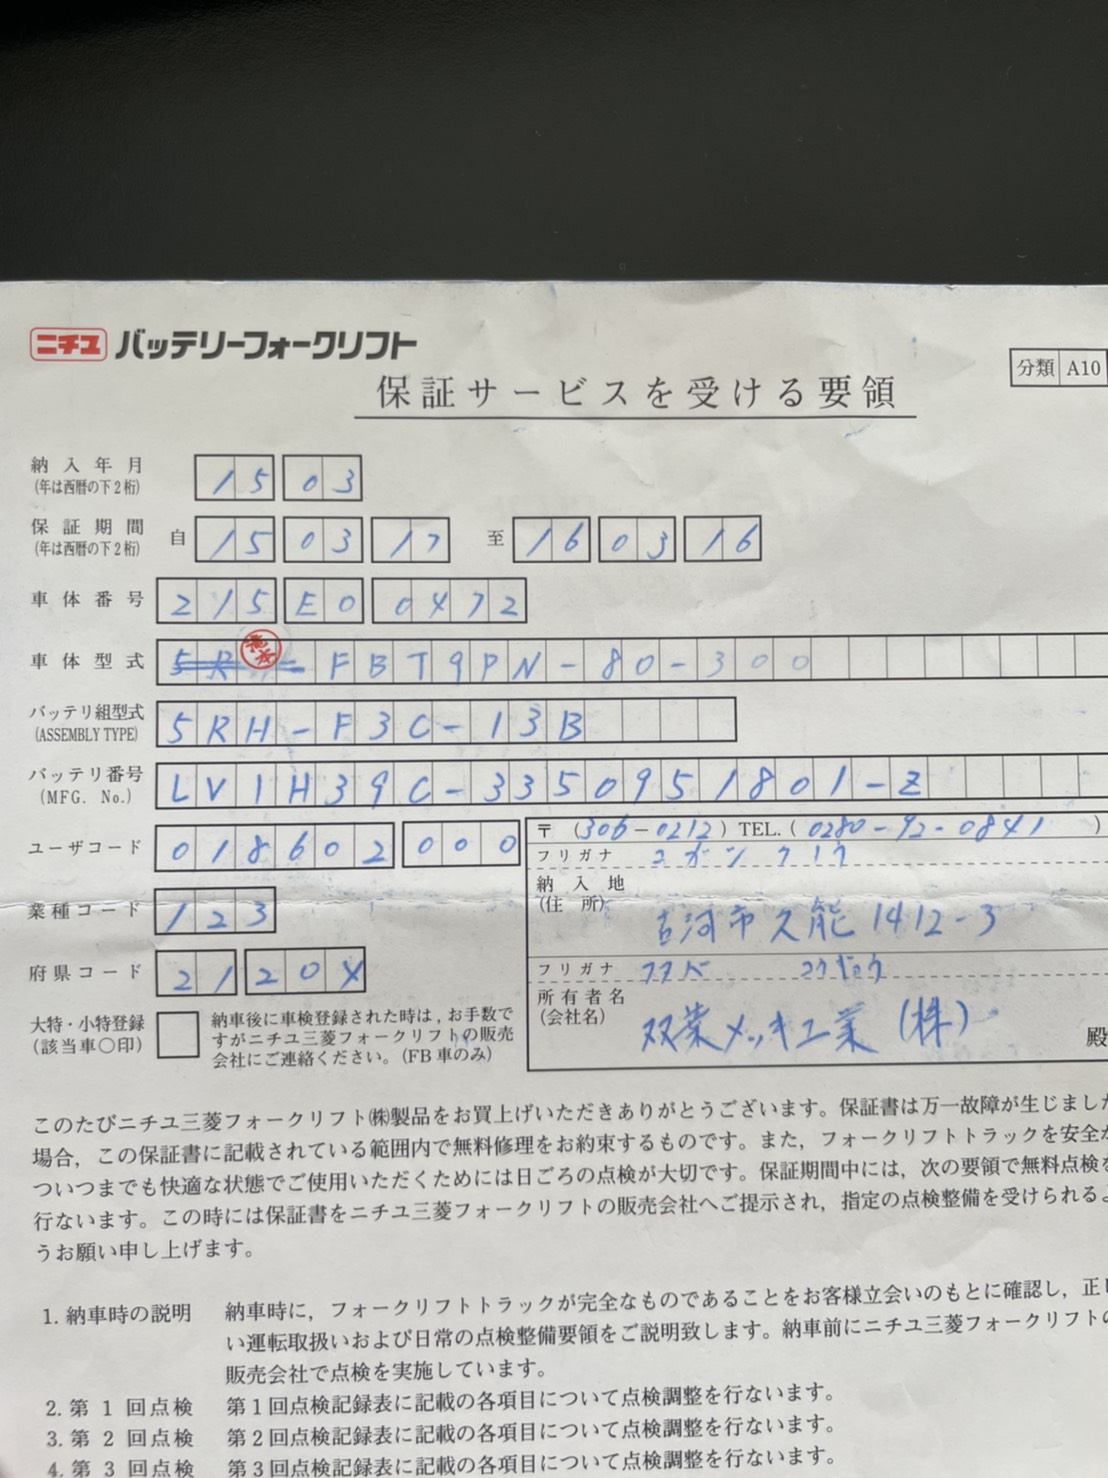 ニチユ バッテリーフォークリフト
保証サービスを受ける要領
分類 A10
納入年月 1503
(年は西暦の下2桁)
保証期間 自 150317 至 160316
(年は西暦の下2桁)
車体番号 215E00472
車体型式 FBT9PN-80-300
バッテリ組型式 5RH-F3C-13B
(ASSEMBLY TYPE)
バッテリ番号 LV1H39C-3350951801-Z
(MFG. No.)
ユーザコード 018602 000
〒(306-0212) TEL.(0280-92-0841)
フリガナ コガシ クノウ
納入地
(住所)
古河市久能1412-3
業種コード 123
府県コード 21 204
フリガナ フタバ コウギョウ
所有者名
(会社名)
双葉メッキ工業(株) 殿
大特・小特登録
(該当車○印)
納車後に車検登録された時は,お手数で
すがニチユ三菱フォークリフトの販売
会社にご連絡ください。(FB車のみ)
このたびニチユ三菱フォークリフト㈱製品をお買上げいただきありがとうございます。保証書は万一故障が生じました
場合,この保証書に記載されている範囲内で無料修理をお約束するものです。また,フォークリフトトラックを安全か
ついつまでも快適な状態でご使用いただくためには日ごろの点検が大切です。保証期間中には,次の要領で無料点検を
行ないます。この時には保証書をニチユ三菱フォークリフトの販売会社へご提示され,指定の点検整備を受けられるよ
うお願い申し上げます。
1. 納車時の説明 納車時に,フォークリフトトラックが完全なものであることをお客様立会いのもとに確認し,正し
い運転取扱いおよび日常の点検整備要領をご説明致します。納車前にニチユ三菱フォークリフトの
販売会社で点検を実施しています。
2. 第1回点検 第1回点検記録表に記載の各項目について点検調整を行ないます。
3. 第2回点検 第2回点検記録表に記載の各項目について点検調整を行ないます。
4. 第3回点検 第3回点検記録表に記載の各項目について点検調整を行ないます。